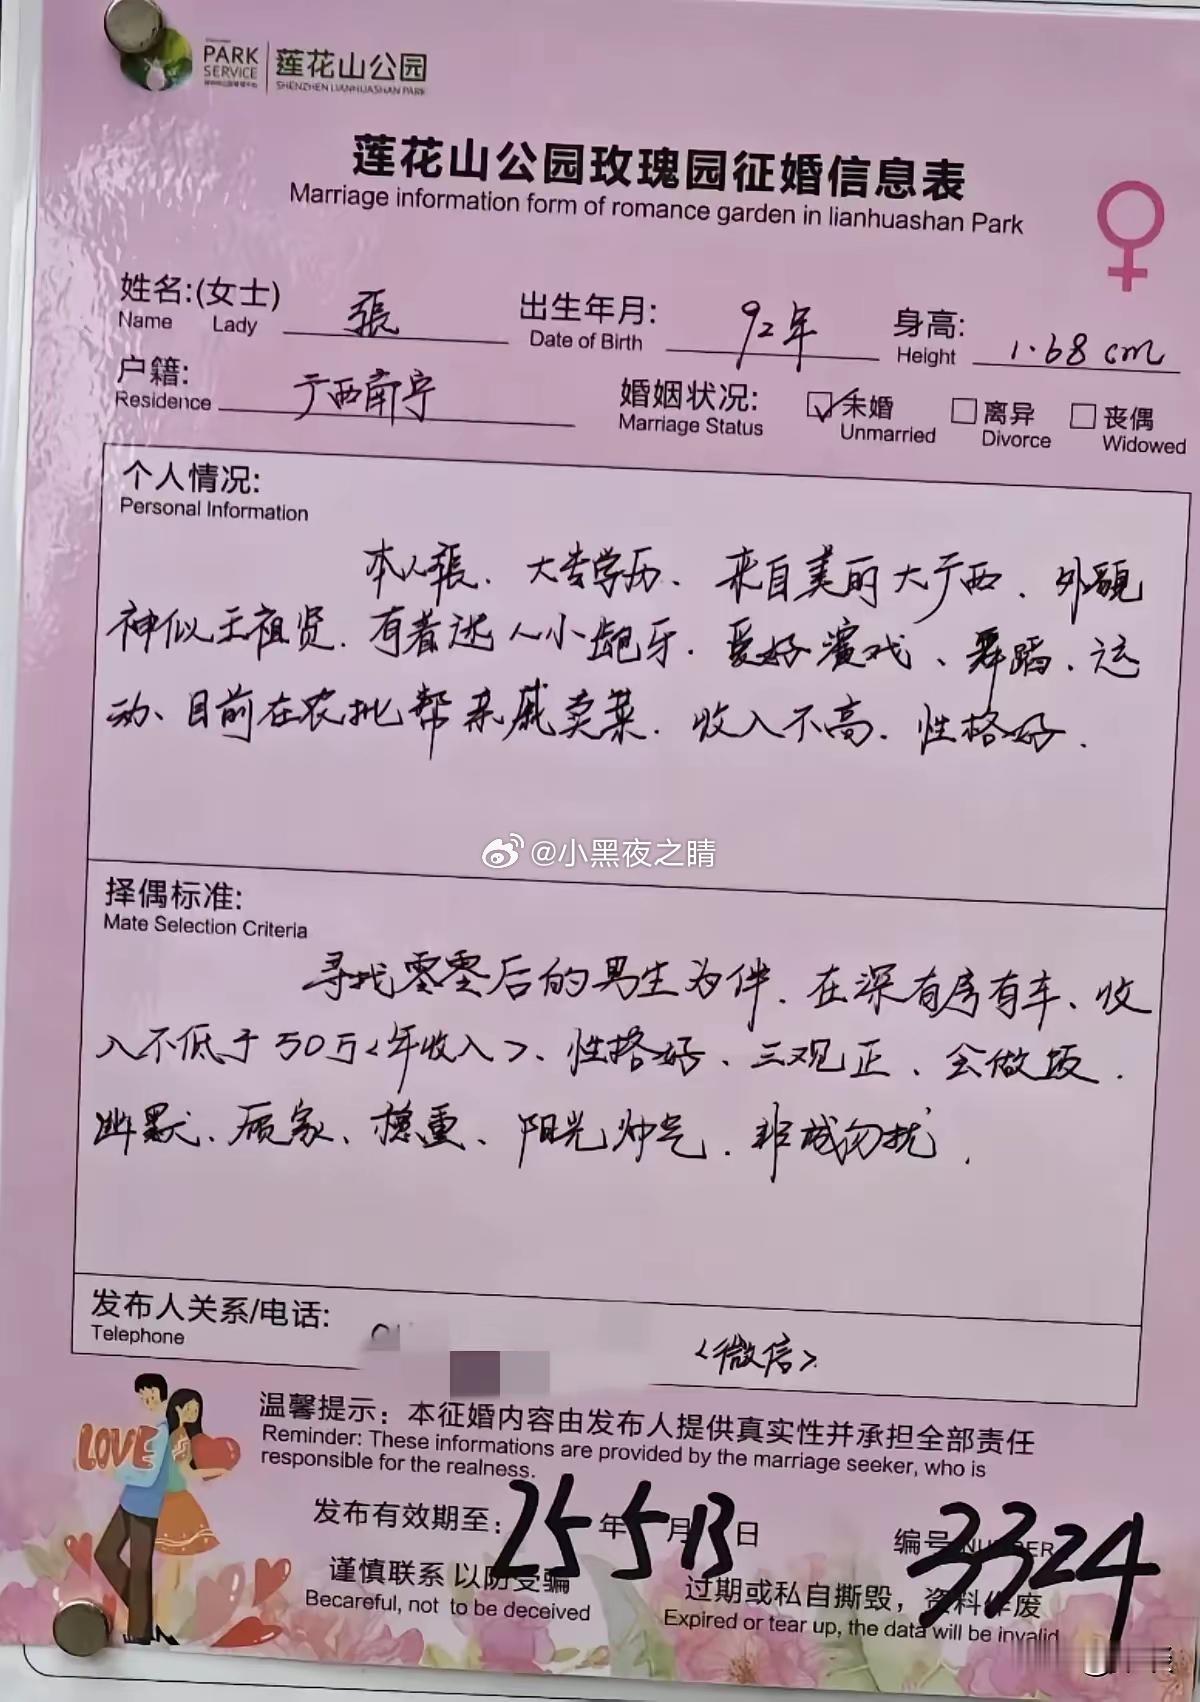 PARK SERVICE 莲花山公园
SHENZHEN LIANHUASHAN PARK
莲花山公园玫瑰园征婚信息表
Marriage information form of romance garden in lianhuashan Park
姓名:(女士) 張 出生年月: 92年 身高: 1.68cm
Name Lady Date of Birth Height
户籍: 广西南宁 婚姻状况: 未婚 离异 丧偶
Residence Marriage Status Unmarried Divorce Widowed
个人情况:
Personal Information
本人張、大专学历、来自美丽大广西、外貌
神似王祖贤、有着迷人小龅牙、爱好演戏、舞蹈、运
动、目前在农批帮亲戚卖菜、收入不高、性格好.
@小黑夜之睛
择偶标准:
Mate Selection Criteria
寻找零零后的男生为伴、在深有房有车、收
入不低于50万<年收入>、性格好、三观正、会做饭.
幽默、顾家、穩重、阳光帅气.非诚勿扰.
发布人关系/电话: <微信>
Telephone
LOVE
温馨提示：本征婚内容由发布人提供真实性并承担全部责任
Reminder: These informations are provided by the marriage seeker, who is
responsible for the realness.
发布有效期至: 25年5月13日 编号 NUMBER 3324
谨慎联系 以防受骗 过期或私自撕毁，资料作废
Becareful, not to be deceived Expired or tear up, the data will be invalid